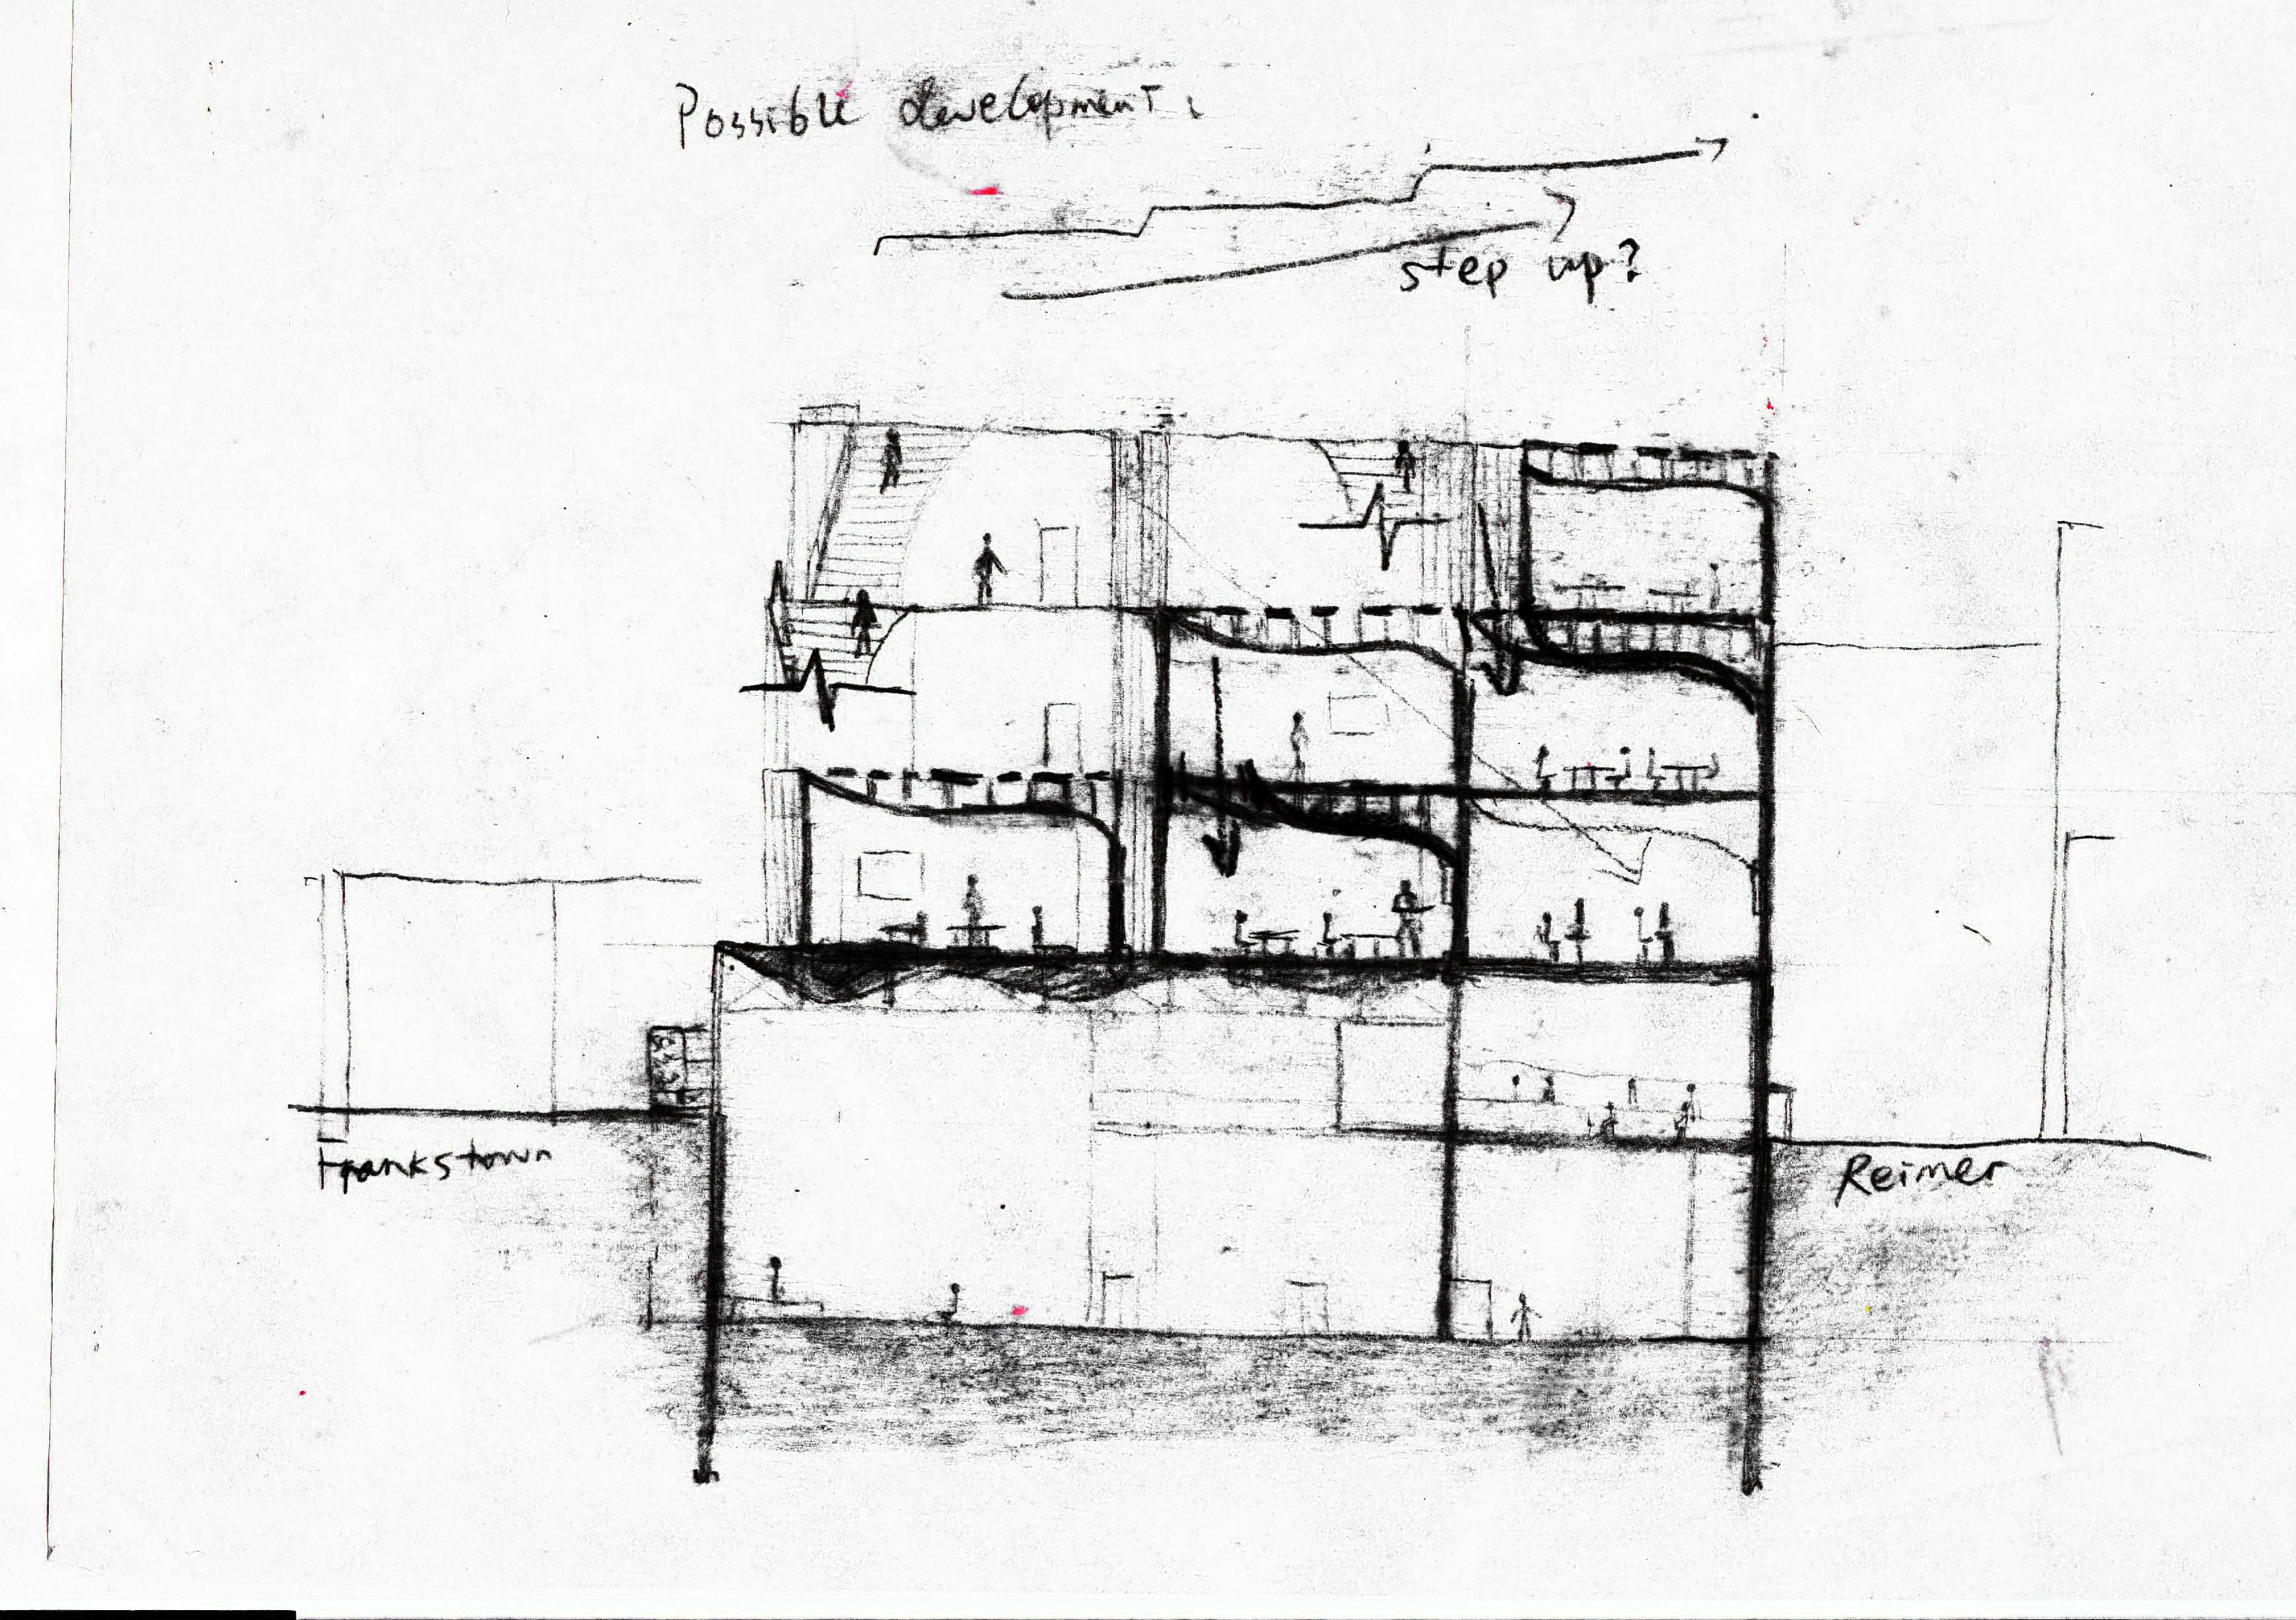 Possible development:
step up?
Frankstown
Reimer